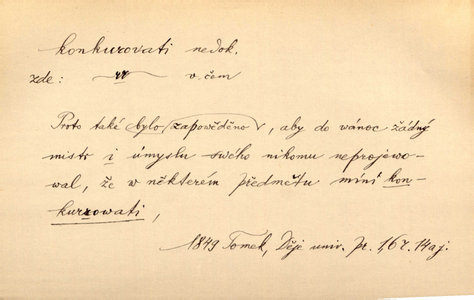 konkurovati nedok.
zde: rr v čem
Proto také bylo zapowěděno, aby do wánoc žádný
mistr i úmyslu swého nikomu neprojewo-
wal, že w některém předmětu míní kon-
kurrowati,
1849 Tomek, Děje univ. pr. 167. 14 aj.